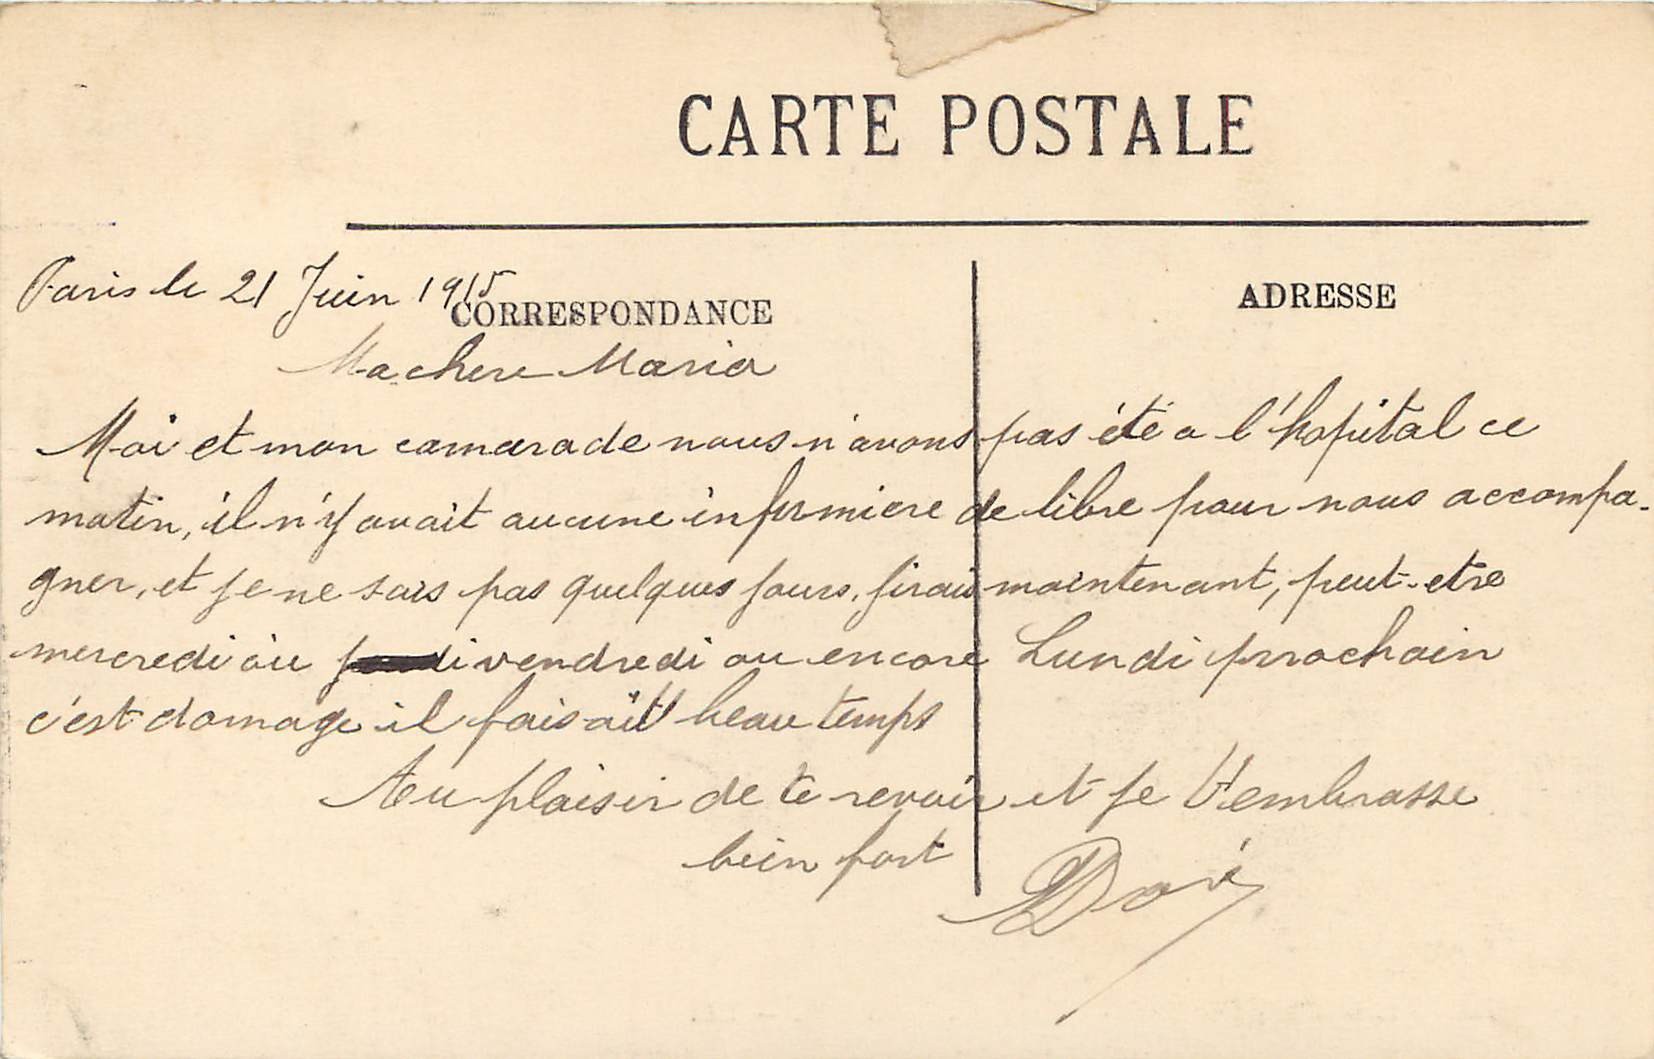 CARTE POSTALE
Paris le 21 Juin 1915
CORRESPONDANCE
ADRESSE
Ma chere Maria
Moi et mon camarade nous n'avons pas été a l'hopital ce
matin, il n'y avait aucune infirmiere de libre pour nous accompa-
gner, et je ne sais pas quelques jours, j'irais maintenant, peut-etre
mercredi ou vendredi ou encore Lundi prochain
c'est domage il faisait beau temps
Au plaisir de te revoir et je t'embrasse
bien fort